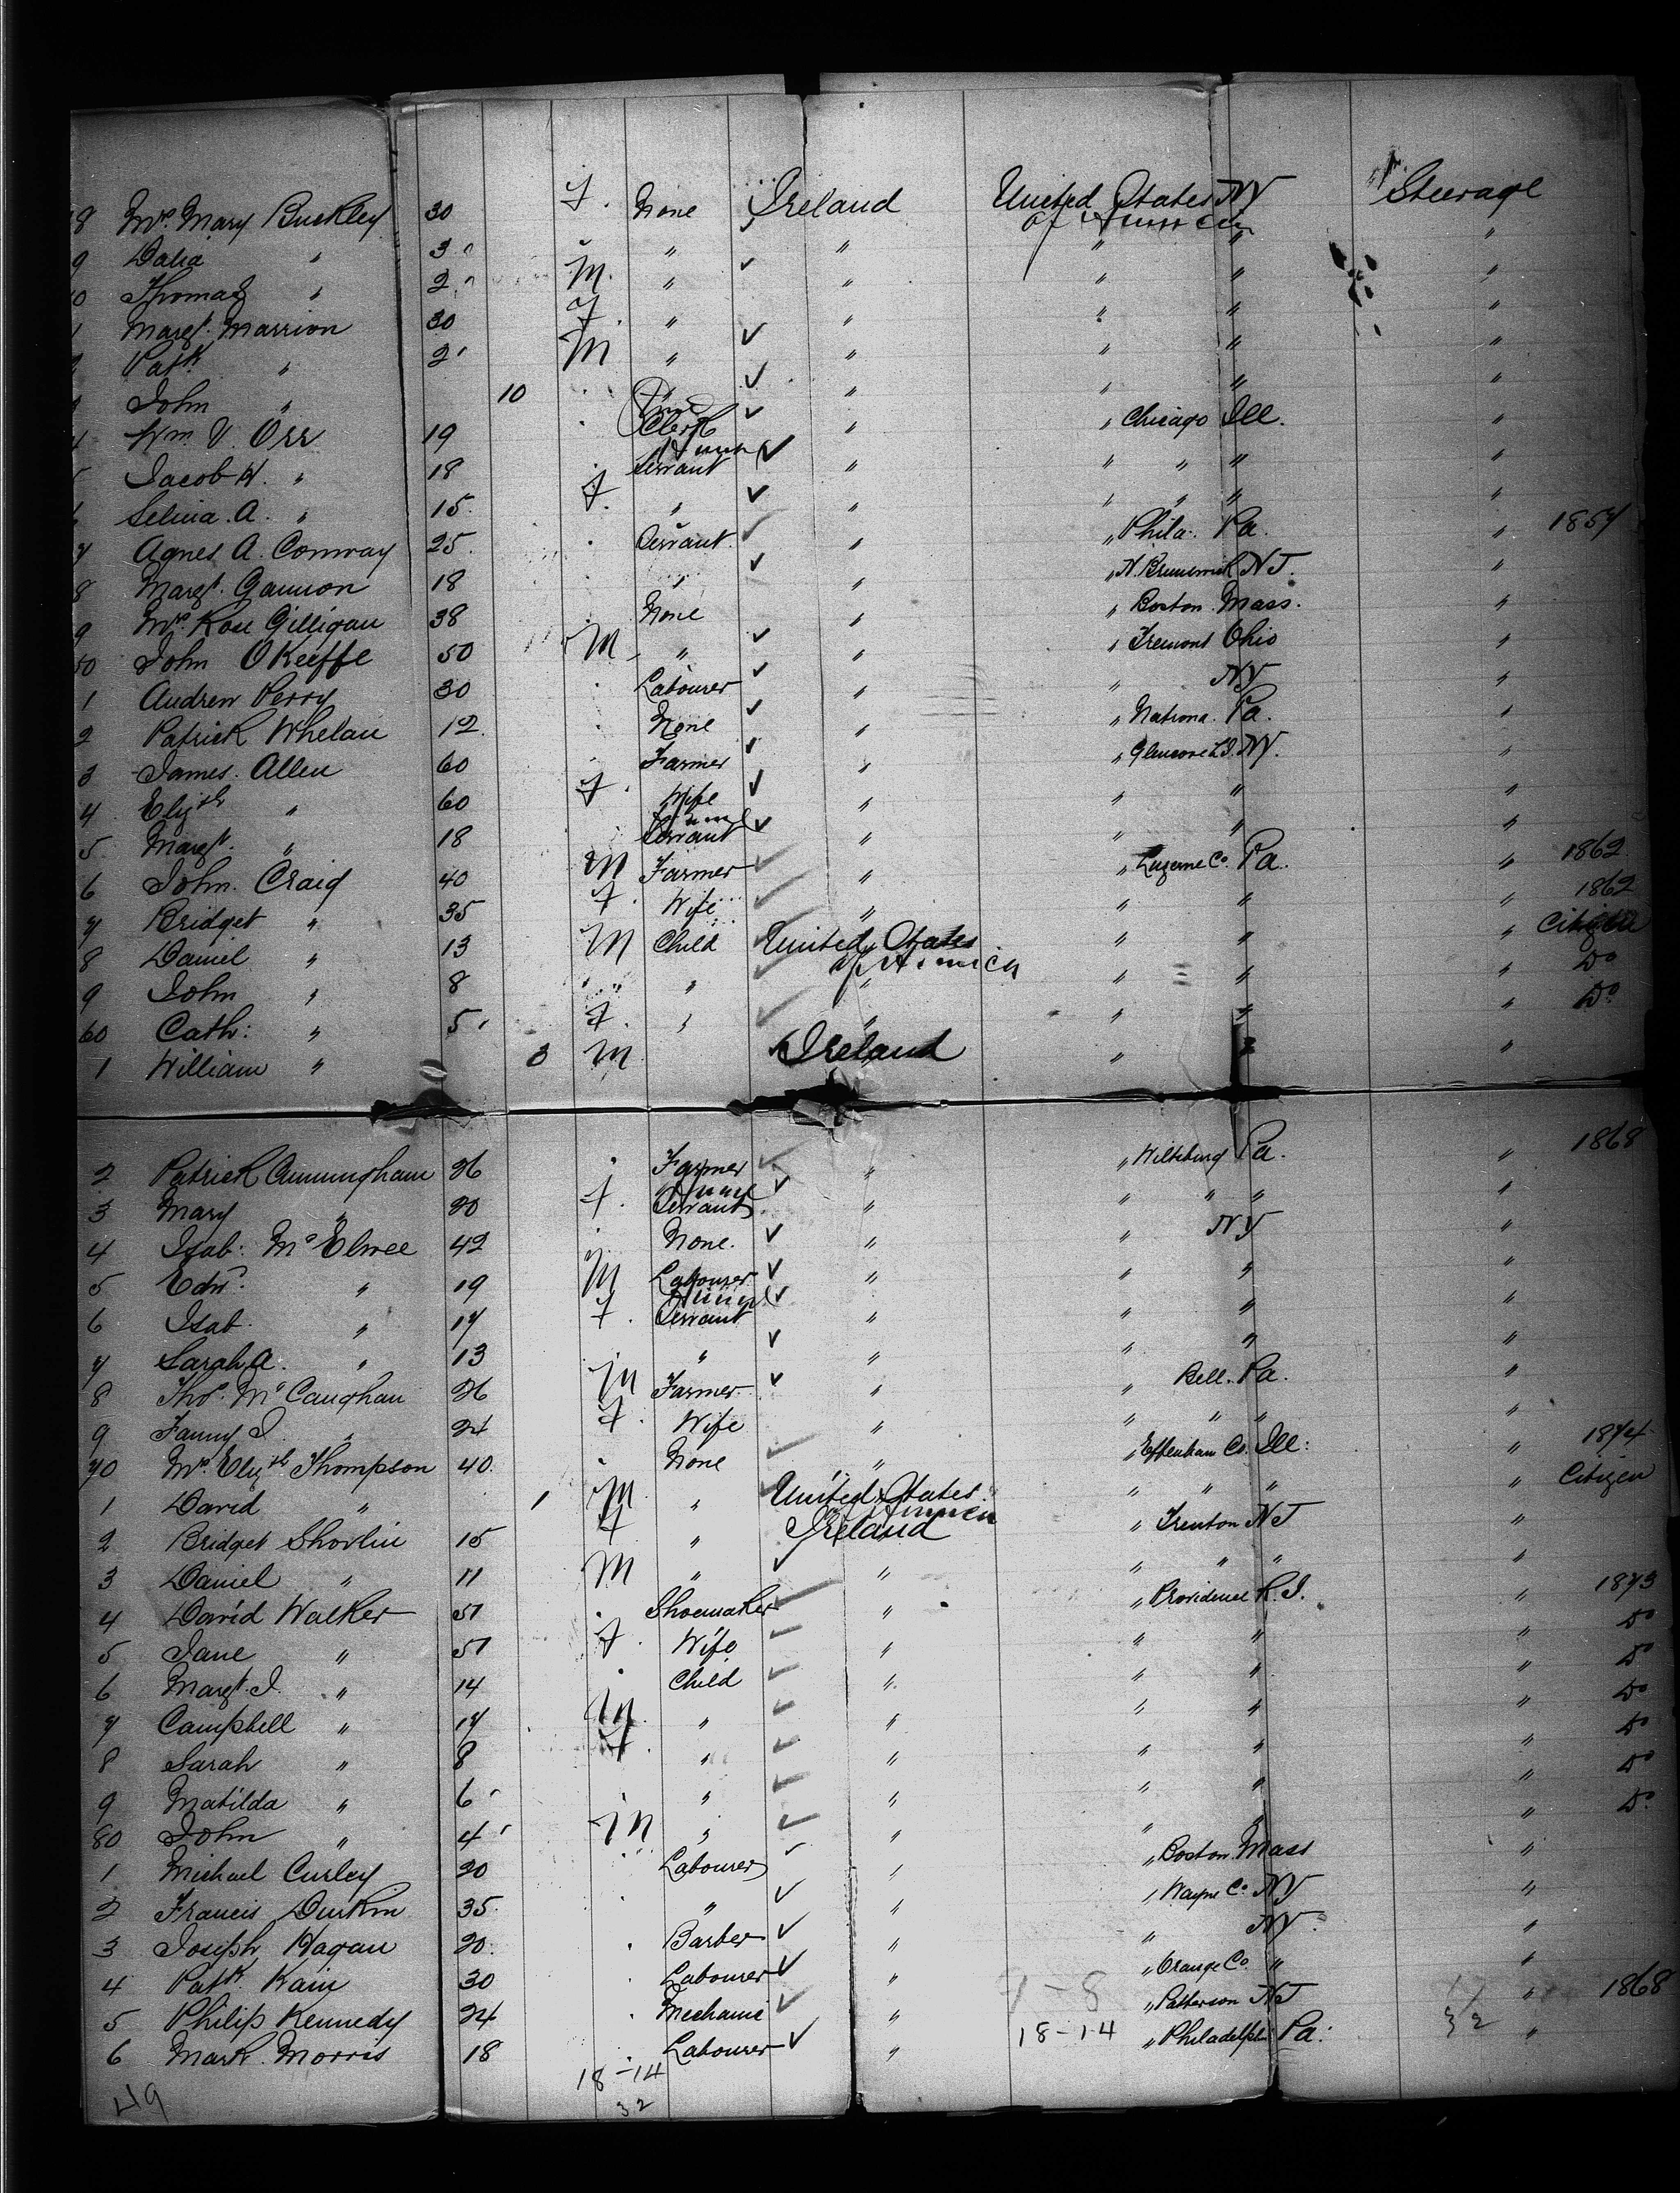 8 Mrs Mary Buckley 30 F. None Ireland United States of America NY Steerage
9 Dalia " 3 " " " " "
10 Thomas " 2 M. " " " " "
1 Margt. Marrion 30 F. " " " " "
2 Patk " 2 M " " " " "
3 John " 10 " " " " "
4 Wm. V. Orr 19 Clerk " " Chicago Ill. "
5 Jacob H. " 18 Servant " " " " "
6 Selina. A. " 15. F. " " " " " "
7 Agnes A. Conway 25. Servant " " Phila. Pa. " 1857
8 Margt. Gannon 18 " " " N. Brunswick NJ.
9 Mrs. Rose Gilligan 38 None " " Boston. Mass. "
50 John OKeeffe 50 M " " " Fremont Ohio "
1 Andrew Perry 30 Labourer " " NY "
2 Patrick Whelan 12. None " " Natrona. Pa. "
3 James. Allen 60 Farmer " " Glencove L.I. NY. "
4 Elizth " 60 F. Wife " " " "
5 Margt. " 18 Servant " " " "
6 John. Craig 40 M Farmer " " Luzerne Co. Pa. " 1862
7 Bridget " 35 F. Wife " " " " 1862
8 Daniel " 13 M Child United States of America " " " Citizen
9 John " 8 " " " " " " Do
60 Cath: " 5 F. " " " " " Do
1 William " 3 M Ireland " " "
2 Patrick Cunningham 26 Farmer " " Wiltsburg Pa. " 1868
3 Mary " 20 F. Servant " " " " "
4 Isab: McElwee 42 None. " " NY "
5 Edwd. " 19 M Labourer " " " "
6 Isab. " 17 F. Servant " " " "
7 Sarah A. " 13 " " " " "
8 Thos. McCaughan 26 M Farmer " " Bell. Pa. "
9 Fanny J. " 24 F. Wife " " " " "
70 Mrs. Elizth Thompson 40. None " " Effenham Co. Ill: " 1874
1 David " 1 M. " United States America " " " " Citizen
2 Bridget Shovlin 15 F " Ireland " Trenton NJ "
3 Daniel " 11 M " " " " " "
4 David Walker 51 Shoemaker " " Providence R.I. " 1873
5 Jane " 51 F. Wife " " " " Do
6 Margt. J. " 14 Child " " " " Do
7 Campbell " 17 M. " " " " " Do
8 Sarah " 8 F. " " " " " Do
9 Matilda " 6 " " " " " Do
80 John " 4 M " " " " " Do
1 Michael Curley 20 Labourer " " Boston. Mass "
2 Francis Durkin 35. " " " Wayne Co. NY "
3 Joseph Hagan 20. Barber " " NY. "
4 Patk. Kain 30 Labourer " " Orange Co. " "
5 Philip Kennedy 24 Mechanic " 7-8 " Patterson NJ " 1868
6 Mark. Morris 18 Labourer " 18-14 " Philadelph. Pa: 32 "
18-14
32
49